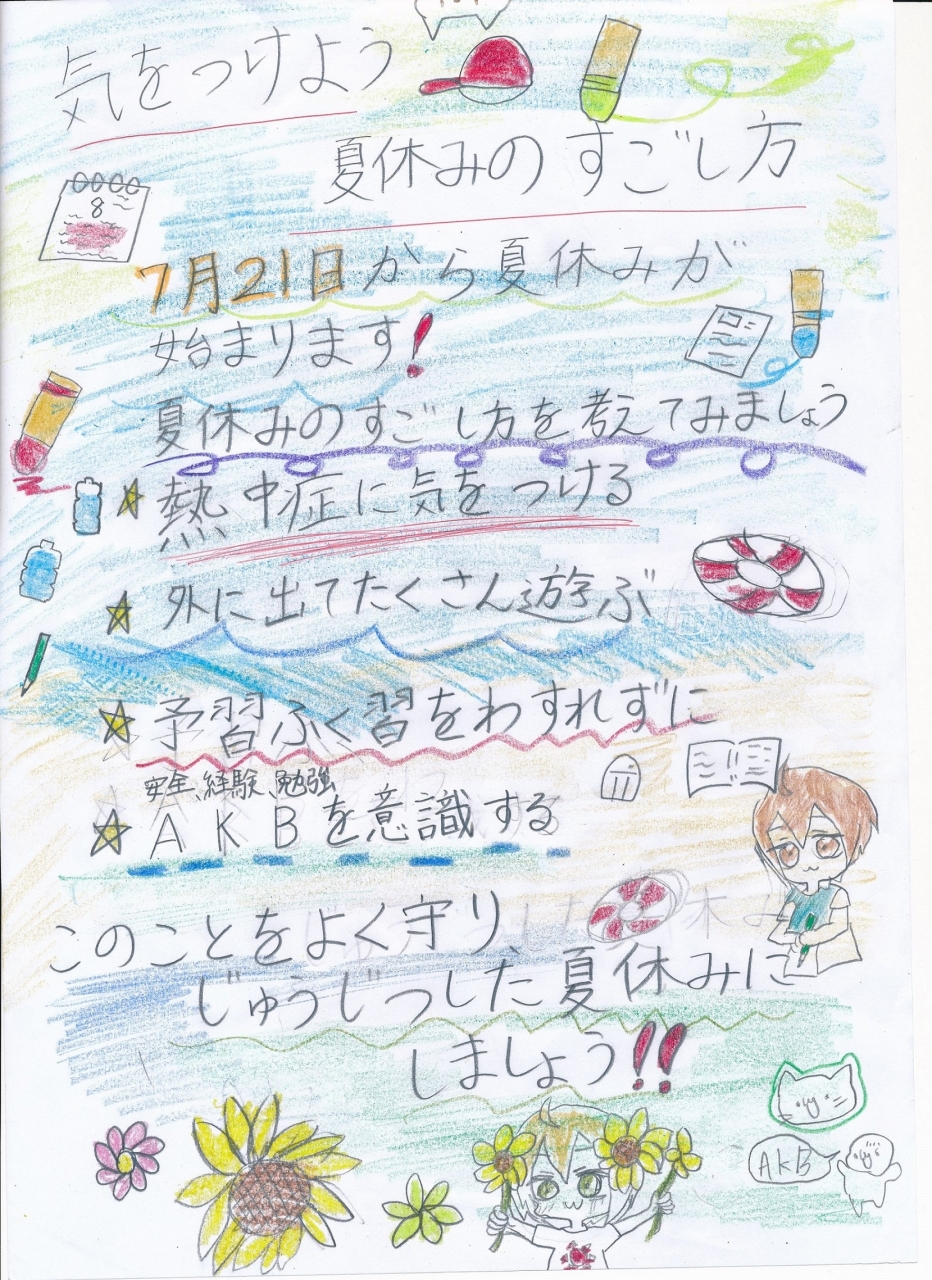 気をつけよう
夏休みのすごし方
8
7月21日から夏休みが
始まります!
夏休みのすごし方を考えてみましょう
☆熱中症に気をつける
☆外に出てたくさん遊ぶ
☆予習ふく習をわすれずに
安全、経験、勉強
☆AKBを意識する
このことをよく守り、
じゅうじつした夏休みに
しましょう!!
AKB